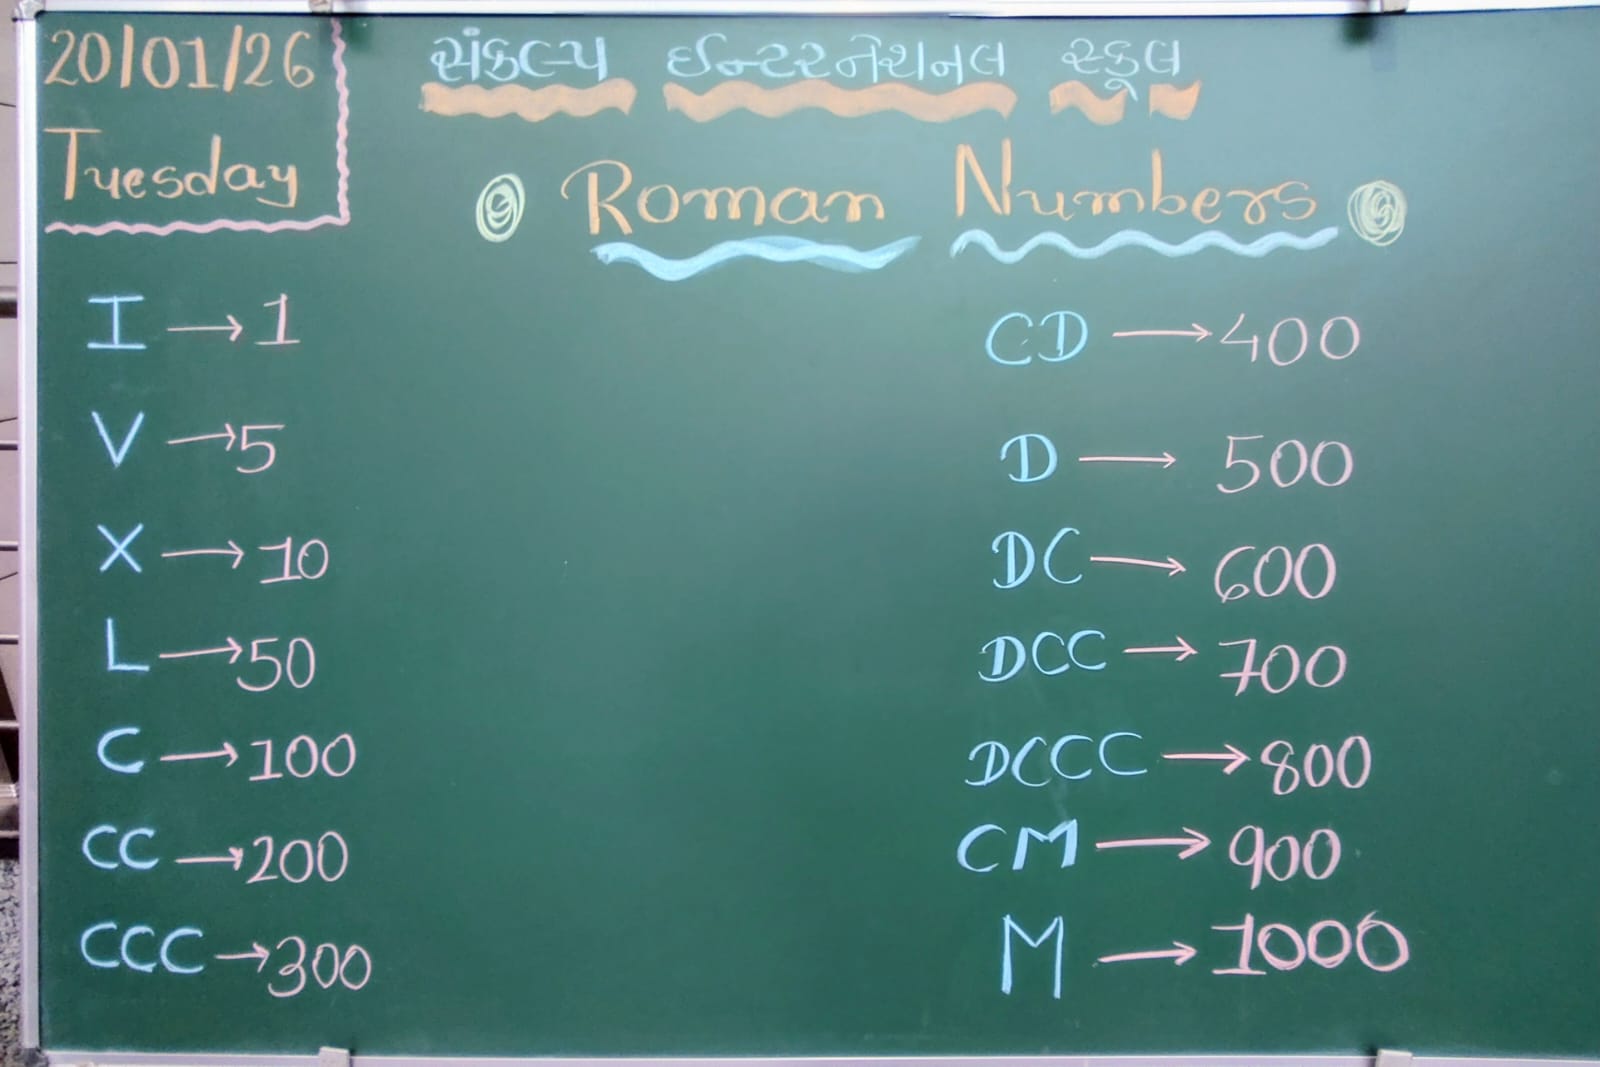 20/01/26
Tuesday
સંકલ્પ ઈન્ટરનેશનલ સ્કૂલ
Roman Numbers
I → 1
V → 5
X → 10
L → 50
C → 100
CC → 200
CCC → 300
CD → 400
D → 500
DC → 600
DCC → 700
DCCC → 800
CM → 900
M → 1000